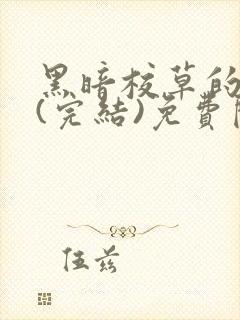 黑暗校草的
(完結)免費
伍兹